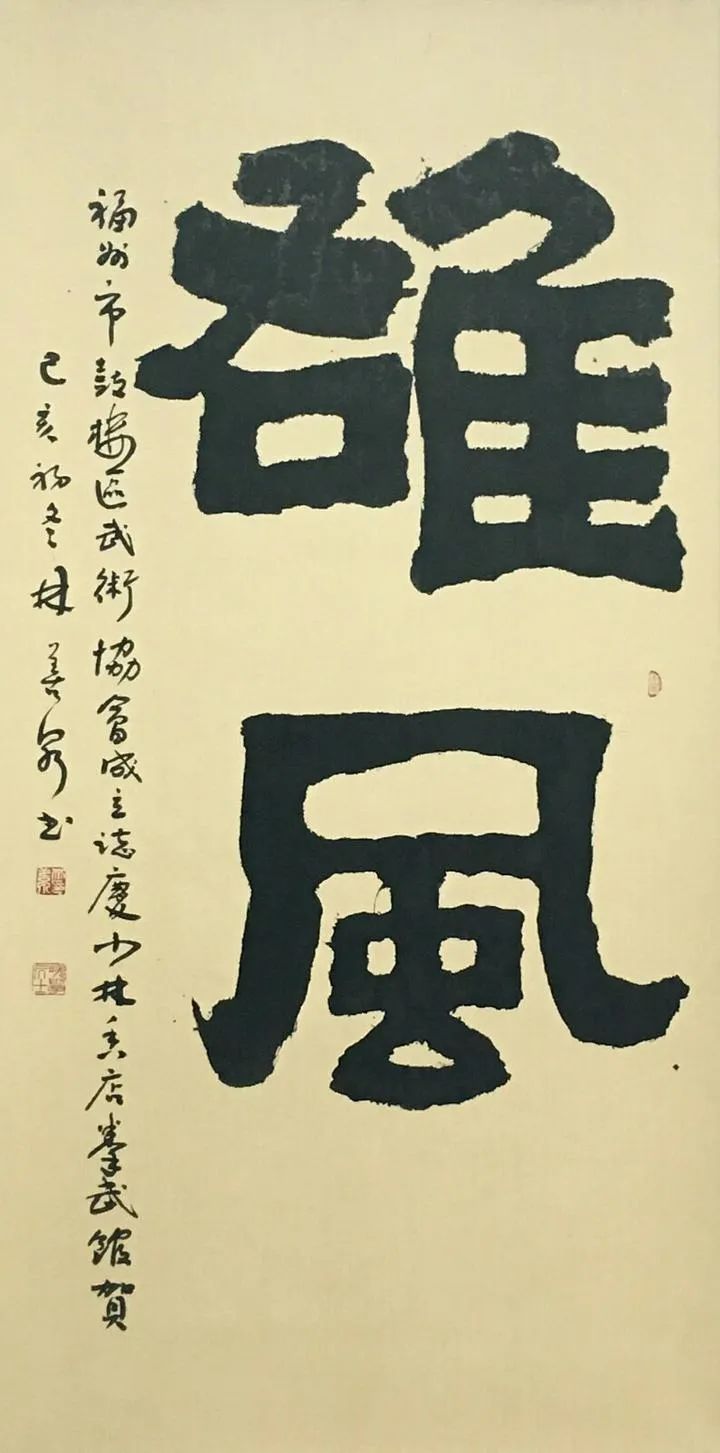 雄風
福州市鼓樓區武術協會成立誌慶少林香店拳武館賀
己亥初冬林善泉书